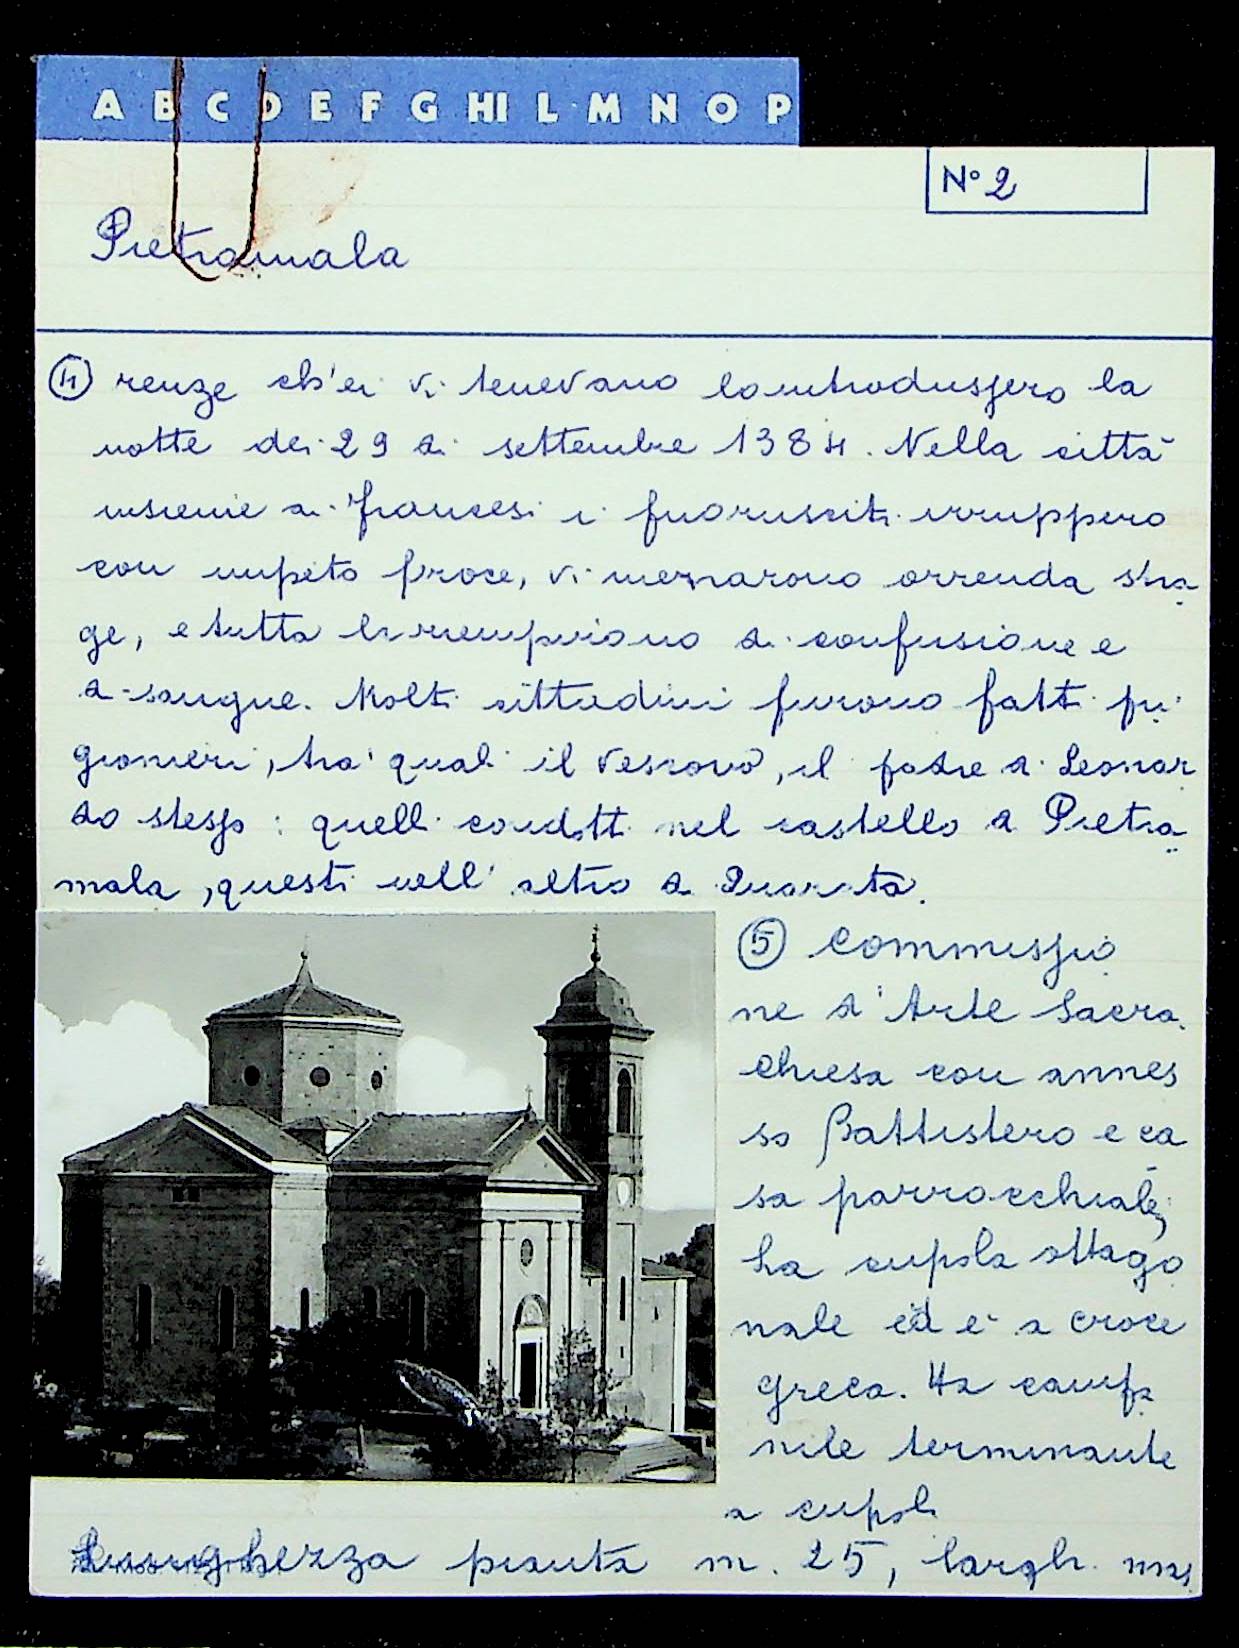 A B C D E F G HI L M N O P
N° 2
Pietramala
④ renze ch'ei vi tenevano lo introdussero la
notte dei 29 di settembre 1384. Nella città
insieme ai francesi i fuorusciti irruppero
con impeto froce, vi menarono orrenda stra
ge, e tutta la riempirono di confusione e
di sangue. Molti cittadini furono fatti pri
gionieri, tra' quali il vescovo, il padre di Leonar
do stesso: quelli condotti nel castello di Pietra
mala, questi nell'altro di Quarata.
⑤ Commissio
ne d'Arte Sacra.
Chiesa con annes
so Battistero e ca
sa parrocchiale;
ha cupola ottago
nale ed è a croce
greca. Ha campa
nile terminante
a cupola
Lunghezza pianta m. 25, largh. mas